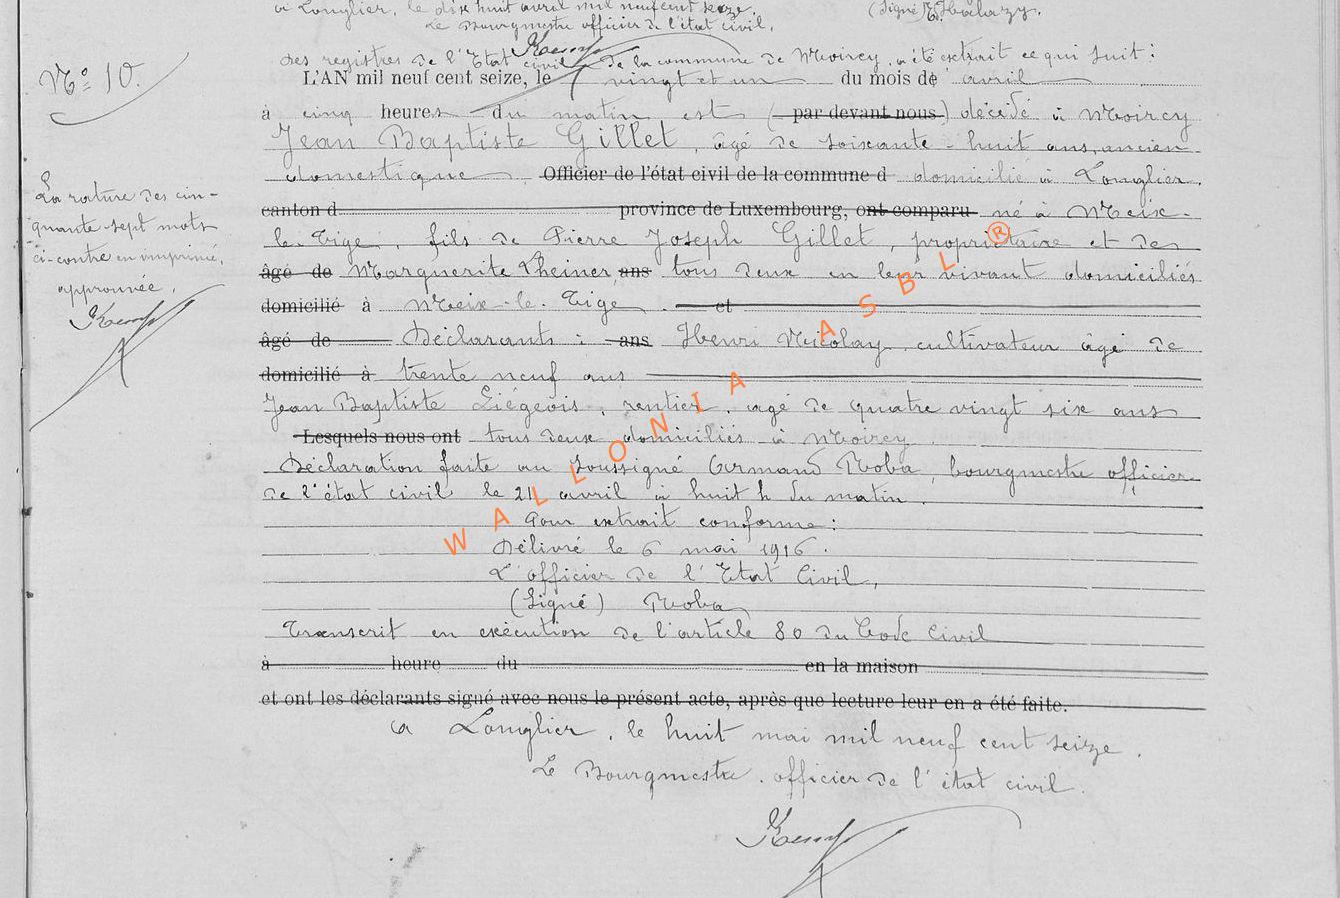 à Longlier, le dix huit avril mil neuf cent seize.
(Signé)
Le Bourgmestre officier de l'état civil,
Des registres de l'Etat civil de la commune de Moircy, a été extrait ce qui suit :
N° 10.
L'AN mil neuf cent seize, le vingt et un du mois de avril
à cinq heures du matin est (par devant nous) décédé à Moircy
Jean Baptiste Gillet, âgé de soixante-huit ans, ancien
domestique Officier de l'état civil de la commune d domicilié à Longlier,
canton d province de Luxembourg, ont comparu né à Meix-
le-Tige, fils de Pierre Joseph Gillet, propriétaire et de
âgé de Marguerite Theiner ans tous deux en leur vivant domiciliés
domicilié à Meix-le-Tige et
âgé de Déclarants : ans Henri Nicolay cultivateur âgé de
domicilié à trente neuf ans
Jean Baptiste Liégeois, rentier, âgé de quatre vingt six ans
Lesquels nous ont tous deux domiciliés à Moircy
Déclaration faite au soussigné Armand Roba, bourgmestre officier
de l'état civil le 21 avril à huit h du matin.
Pour extrait conforme :
Délivré le 6 mai 1916.
L'officier de l'Etat Civil,
(Signé) Roba
Transcrit en exécution de l'article 80 du Code Civil
à heure du en la maison
et ont les déclarants signé avec nous le présent acte, après que lecture leur en a été faite.
A Longlier, le huit mai mil neuf cent seize.
Le Bourgmestre, officier de l'état civil.
La rature des cin-
quante-sept mots
ci-contre en imprimé,
approuvée,
WALLONIA ASBL®